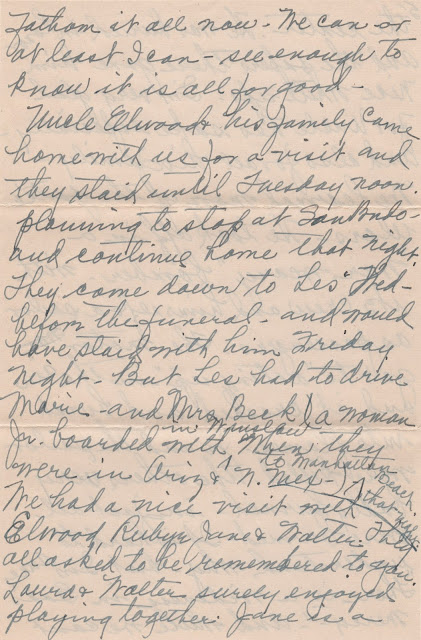 fathom it all now - We can - or
at least I can - see enough to
know it is all for good -
Uncle Ellwood & his family came
home with us for a visit and
they staid until Tuesday noon.
planning to stop at SanBndo -
and continue home that night.
They come down to Les' Wed -
before the funeral - and would
have staid with him Friday
night - But Les had to drive
Marie - and Mrs. Beck (a woman
Jr. boarded with in Winslow when they
were in Ariz & N. Mex -) to Manhattan Beach that night
We had a nice visit with
Elwood, Ruby, Jane & Walter. They
all asked to be remembered to you.
Laura & Walter surely enjoyed
playing together. Jane is a